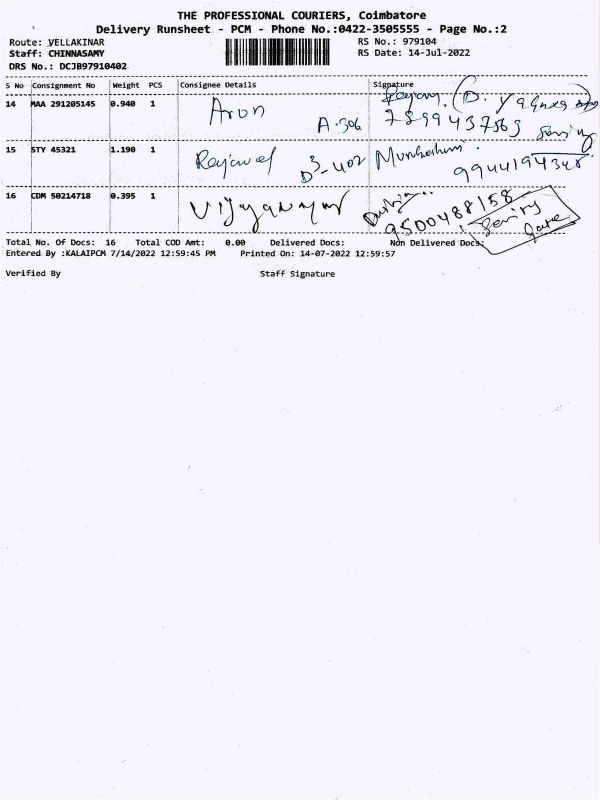 THE PROFESSIONAL COURIERS, Coimbatore
Delivery Runsheet - PCM - Phone No.:0422-3505555 - Page No.:2
Route: VELLAKINAR RS No.: 979104
Staff: CHINNASAMY RS Date: 14-Jul-2022
DRS No.: DCJB97910402
S No Consignment No Weight PCS Consignee Details Signature
14 MAA 291205145 0.940 1 Arun A-306
7899437563
15 STY 45321 1.190 1 Rajavel D3-402
9944194348
16 CDM 50214718 0.395 1 Vijayakumar
9500488158
Total No. Of Docs: 16 Total COD Amt: 0.00 Delivered Docs: Non Delivered Docs:
Entered By :KALAIPCM 7/14/2022 12:59:45 PM Printed On: 14-07-2022 12:59:57
Verified By Staff Signature